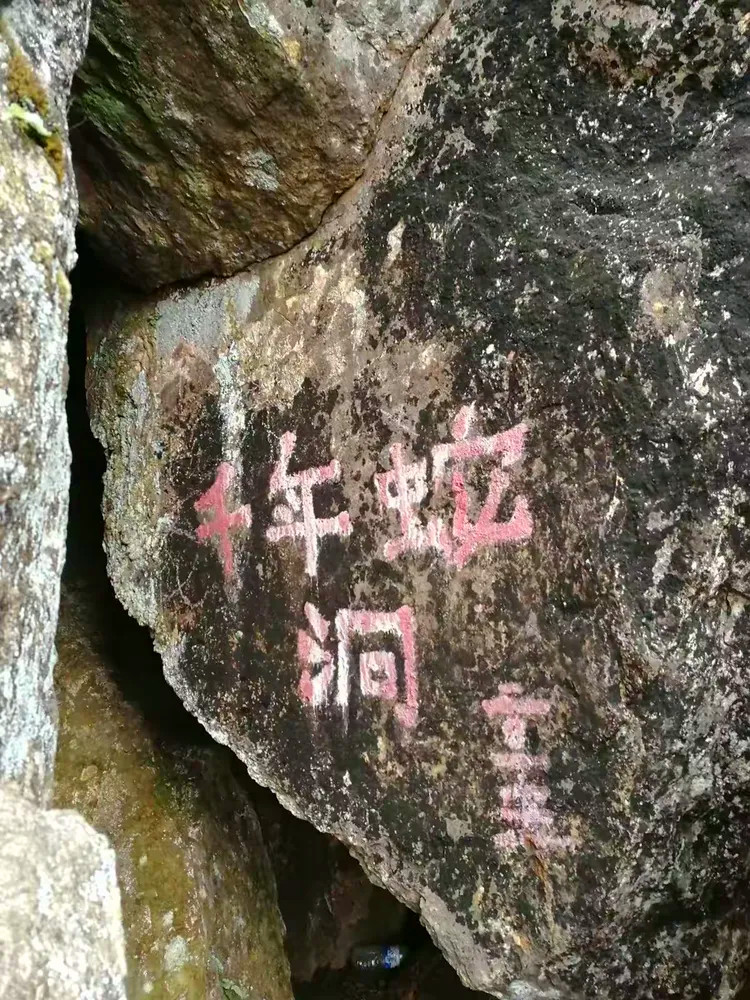 千年蛇
洞